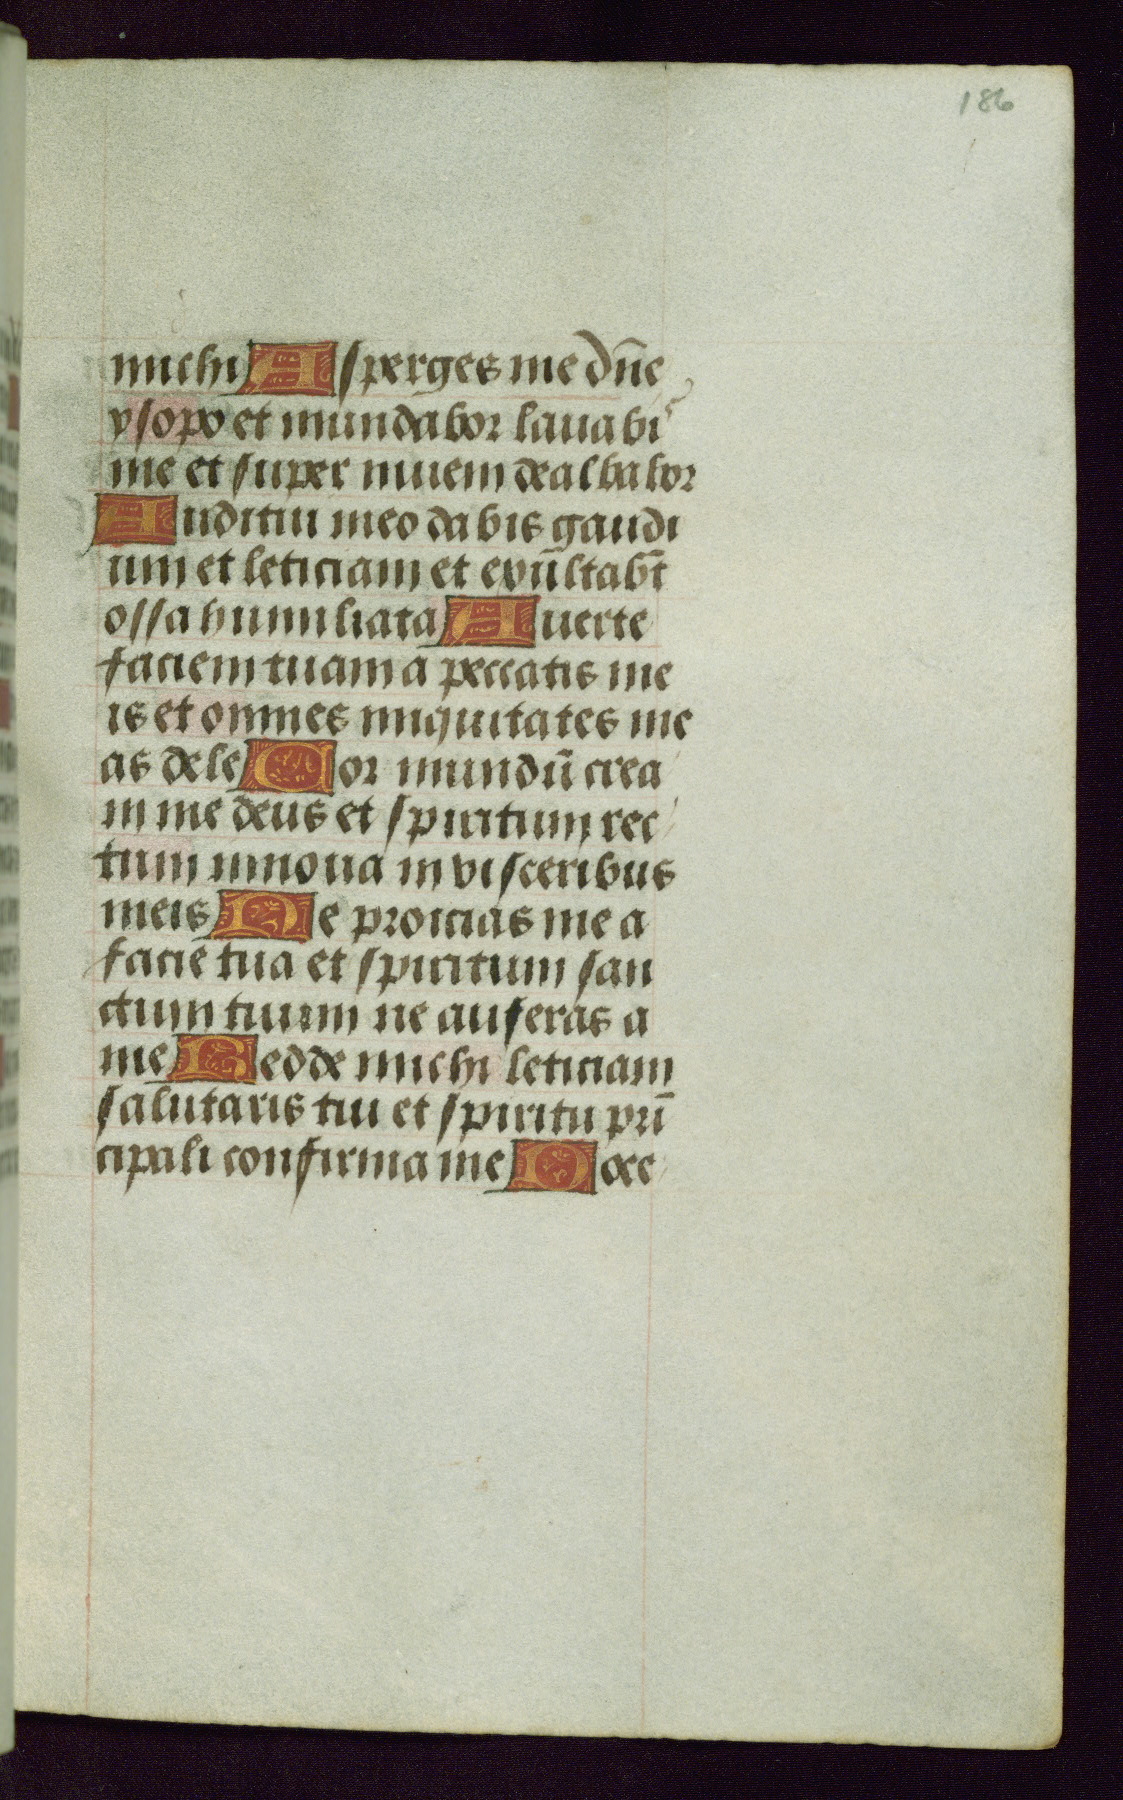 186
michi Asperges me dn̄e
ysopo et mundabor lauabis
me et super niuem dealbabor
Auditui meo dabis gaudi
um et leticiam et exūltab̄t
ossa humiliata Auerte
faciem tuam a peccatis me
is et omnes iniquitates me
as dele Cor mundū crea
in me deus et spiritum rec
tum innoua in visceribus
meis Ne proicias me a
facie tua et spiritum san
ctum tuum ne auferas a
me Redde michi leticiam
salutaris tui et spiritu prī
cipali confirma me Doce